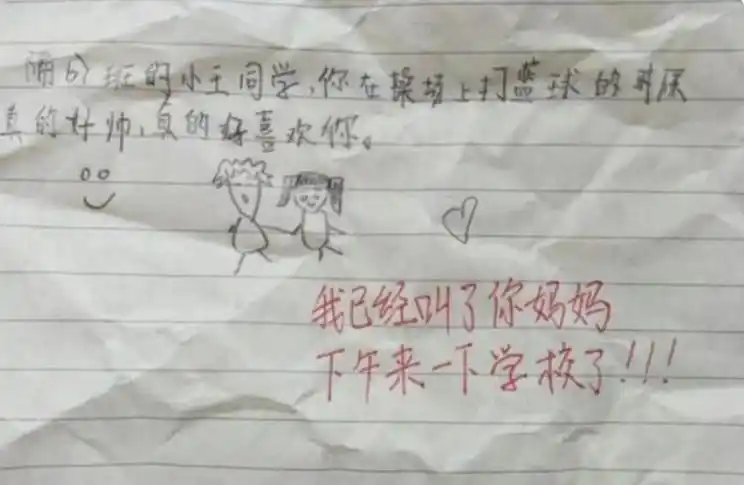 隔6)班的小王同学,你在操场上打蓝球的
真的好帅,真的好喜欢你。
我已经叫了你妈妈
下午来一下学校了!!!